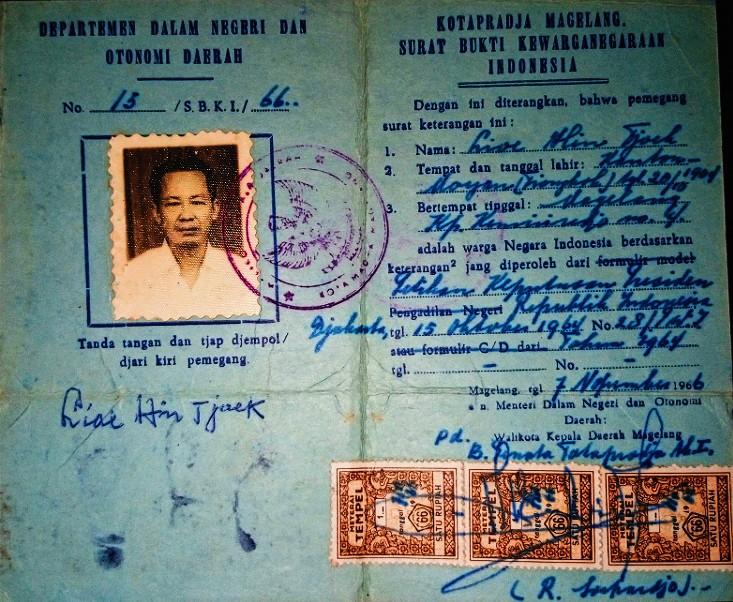 DEPARTEMEN DALAM NEGERI DAN
OTONOMI DAERAH
No. 15 / S.B.K.I./ 66..
Tanda tangan dan tjap djempol/
djari kiri pemegang.
Lioe Hin Tjoek
KOTAPRADJA MAGELANG.
SURAT BUKTI KEWARGANEGARAAN
INDONESIA
Dengan ini diterangkan, bahwa pemegang
surat keterangan ini :
1. Nama: Lioe Hin Tjoek
2. Tempat dan tanggal lahir: Kanton-
3. Bertempat tinggal: Magelang
adalah warga Negara Indonesia berdasarkan
keterangan² jang diperoleh dari formulir model
Petikan Keputusan Presiden
Pengadilan Negeri Republik Indonesia
Djakarta, tgl. 15 Oktober 1964 No.
atau formulir C/D dari Tahun 1964
tgl. - No. -
Magelang, tgl 7 Nopember 1966
a n. Menteri Dalam Negeri dan Otonomi
Daerah:
Pd. Walikota Kepala Daerah Magelang
METERAI TEMPEL
66
SATU RUPIAH
METERAI TEMPEL
66
SATU RUPIAH
METERAI TEMPEL
66
SATU RUPIAH